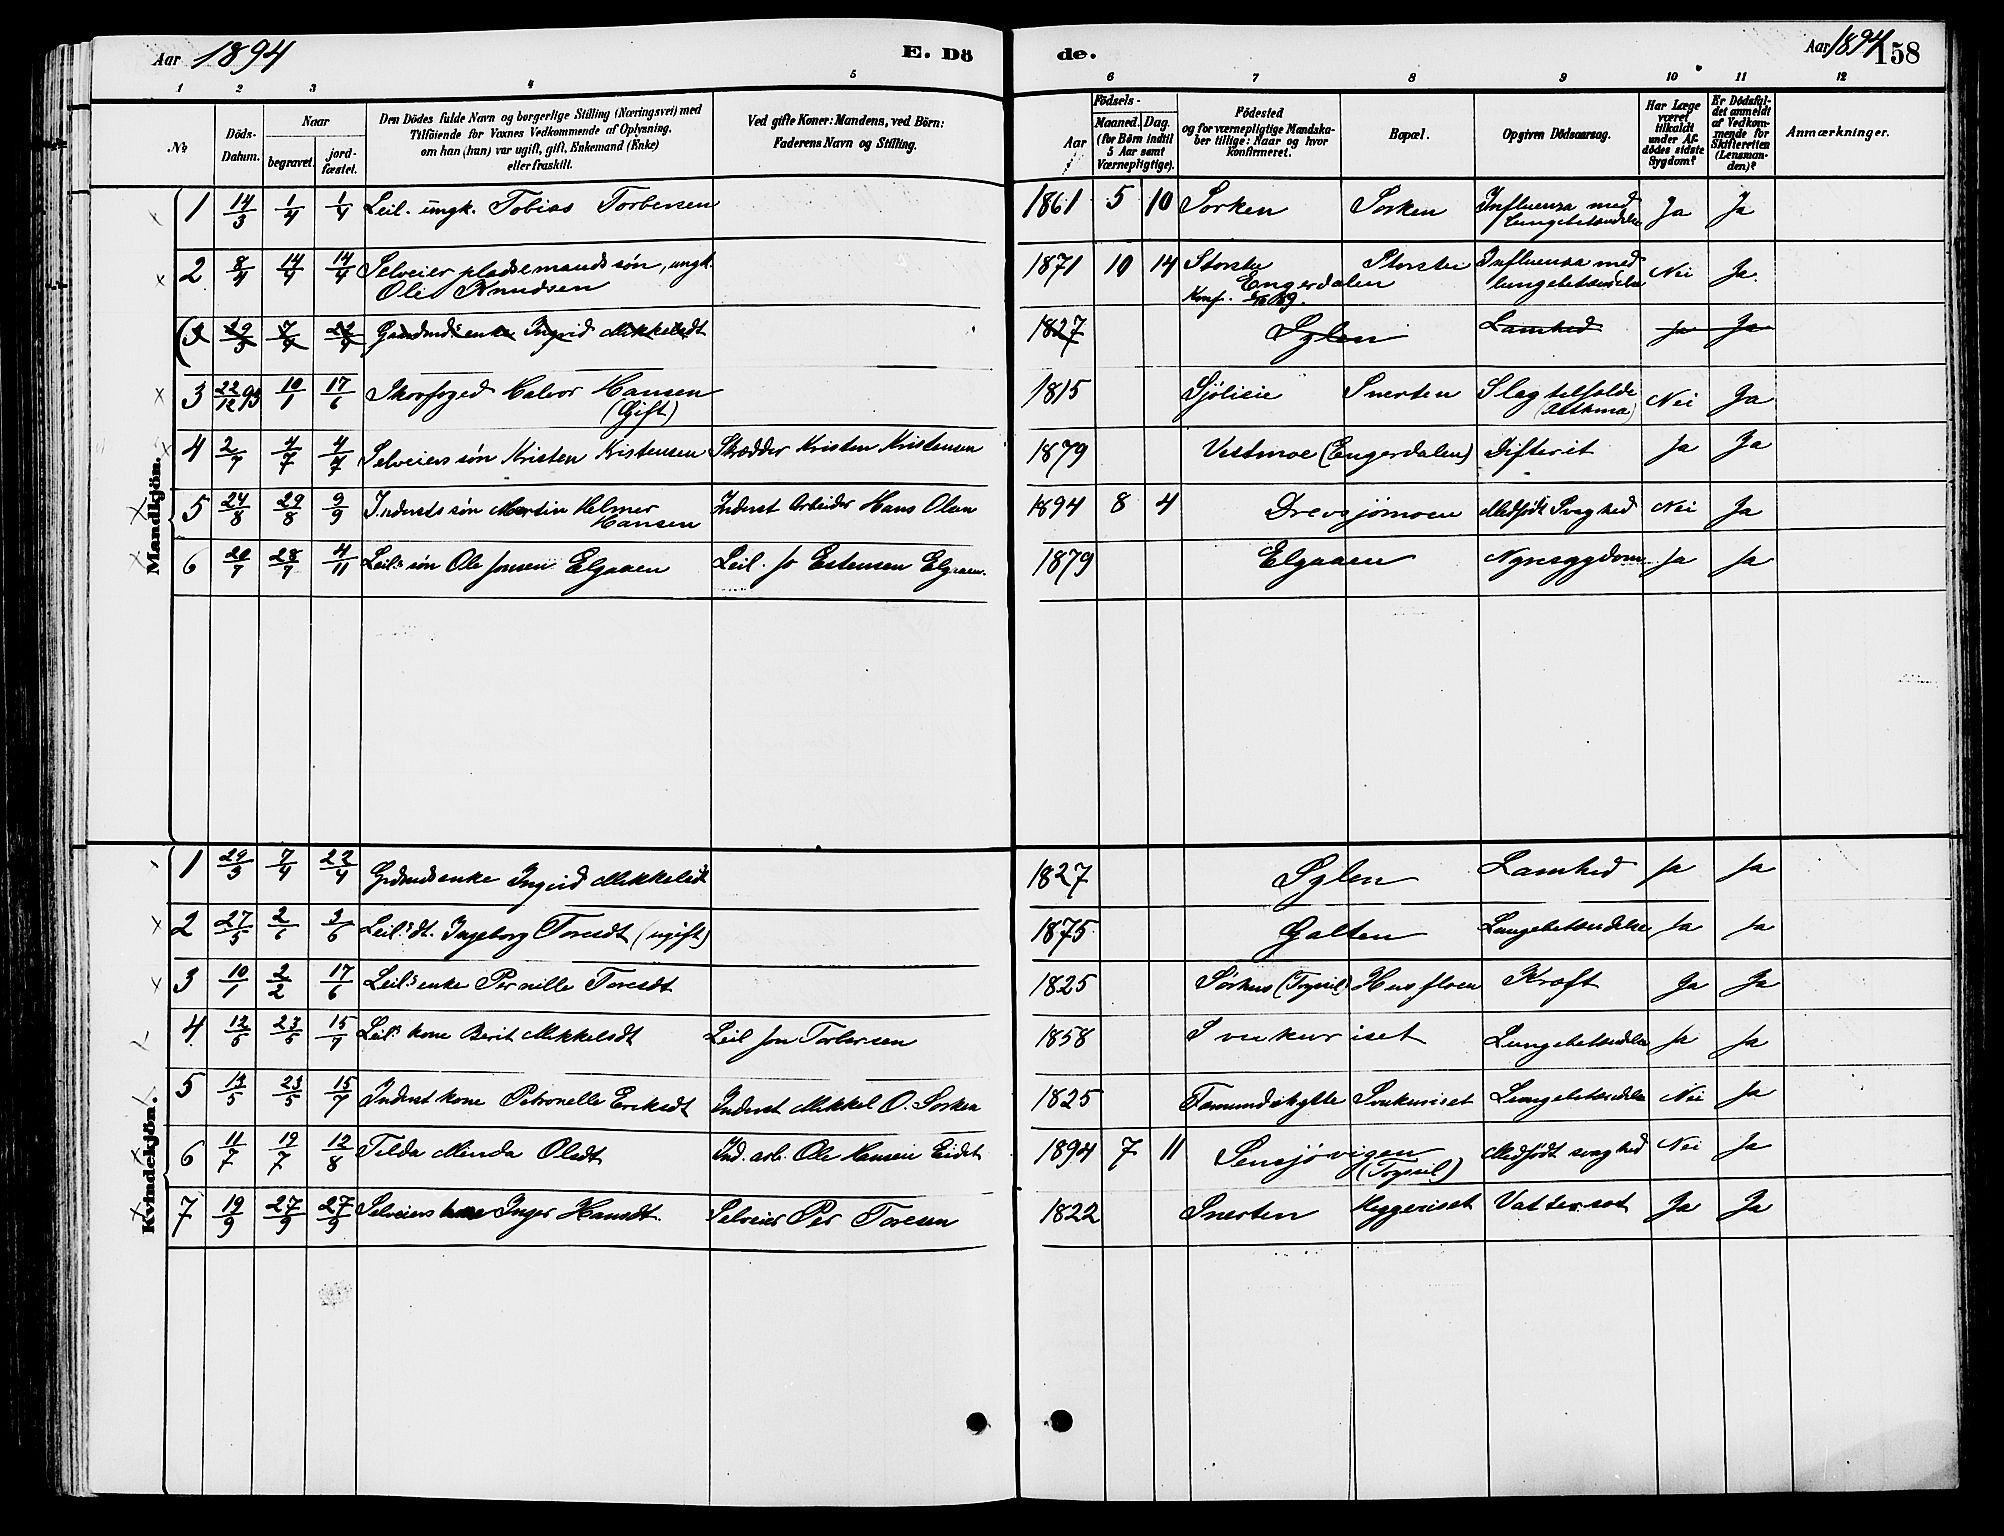 Aar 1894 E. Dö de. Aar 1894 158
1 2 3 4 5 6 7 8 9 10 11 12
No
Döds-Datum.
Naar
begravet.
jord-fæstet.
Den Dödes fulde Navn og borgerlige Stilling (Næringsvei) med
Tilföiende for Voxnes Vedkommende af Oplysning,
om han (hun) var ugift, gift, Enkemand (Enke)
eller fraskilt.
Ved gifte Koner: Mandens, ved Börn:
Faderens Navn og Stilling.
Aar
Födsels-
Maaned. Dag.
(for Börn indtil
5 Aar samt
Værnepligtige).
Födested
og for værnepligtige Mandska-
ber tillige: Naar og hvor
konfirmeret.
Bopæl.
Opgiven Dödsaarsag.
Har Læge
været
tilkaldt
under Af-
dödes sidste
Sygdom?
Er Dödsfal-
det anmeldt
af Vedkom-
mende for
Skifteretten
(Lensman-
den)?
Anmærkninger.
Mandkjön.
1 14/3 1/4 1/4 Leil. ungk. Tobias Torbersen 1861 5 10 Sorken Sorken Influensa med Lungebetændelse Ja Ja
2 8/4 14/4 14/4 Selveier pladsemands søn, ungk. Ole Knudsen 1871 10 14 Storste Engerdalen Konf. Storste Influensa med lungebetændelse Nei Ja
(3 29/3 7/4 22/4 Grdmds enke Ingrid Mikkelsdt 1827 Sylen Lamhed Ja Ja
3 22/12 93 10/1 17/6 Skovfoged Halvor Hansen (Gift) 1815 Sjölisie Snerten Slagtilfælde (Asthma) Nei Ja
4 2/7 4/7 4/7 Selveiers søn Kristen Kristensen Skrædder Kristen Kristensen 1879 Vestmoe (Engerdalen) Difterit Ja Ja
5 24/8 29/8 9/9 Inderst søn Martin Helmer Hansen Inderst Arbeider Hans Olsen 1894 8 4 Drevsjømoen Medfödt Svaghed Nei Ja
6 20/7 28/7 4/11 Leil.s søn Ole Jonsen Elgaaen Leil. Jo Estensen Elgaaen. 1879 Elgaaen Nyresygdom Ja Ja
Kvindekjön.
1 29/3 7/4 22/4 Grdmds enke Ingrid Mikkelsdt 1827 Sylen Lamhed Ja Ja
2 27/5 2/6 3/6 Leil.s dt. Ingeborg Toresdt (ugift) 1875 Galten Lungebetændelse Ja Ja
3 10/1 2/2 17/6 Leil.s enke Pernille Toresdt 1825 Sørhus (Trysil) Husfloen Kræft Ja Ja
4 12/5 23/5 15/7 Leil.s kone Berit Mikkelsdt Leil Jon Torbersen 1858 Svukuriset Lungebetændelse Ja Ja
5 13/5 23/5 15/7 Inderst kone Petronelle Eriksdt Inderst Mikkel O. Sorken 1825 Fæmundshytte Svukuriset Lungebetændelse Nei Ja
6 11/7 19/7 12/8 Tilda Minda Olsdt Ind. arb. Ole Hansen Eidet 1894 7 11 Sensjøvigen (Trysil) Medfödt svaghed Nei Ja
7 19/9 27/9 27/9 Selveiers kone Inger Hansdt. Selveier Per Toresen 1822 Snerten Heggeriset Vattersot Ja Ja